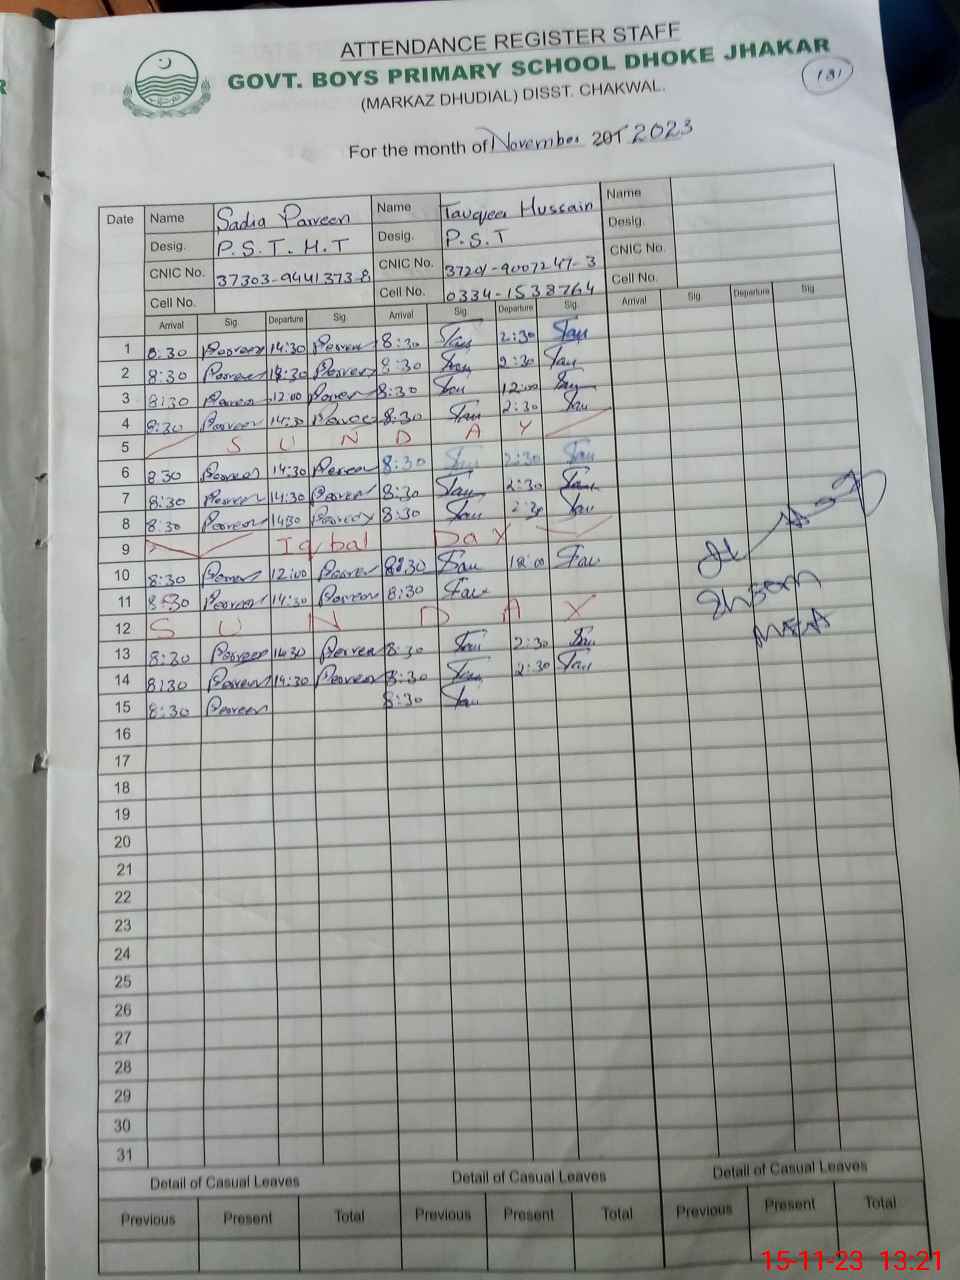 ATTENDANCE REGISTER STAFF
GOVT. BOYS PRIMARY SCHOOL DHOKE JHAKAR
(MARKAZ DHUDIAL) DISST. CHAKWAL.
131
For the month of November 201 2023
Date Name Sadia Parveen Name Tauqeer Hussain Name
Desig. P.S.T. H.T Desig. P.S.T Desig.
CNIC No. 37303-9441373-8 CNIC No. 37201-9007247-3 CNIC No.
Cell No. Cell No. 0334-1538764 Cell No.
Arrival Sig. Departure Sig. Arrival Sig. Departure Sig. Arrival Sig. Departure Sig.
1 8:30 Parveen 14:30 Parveen 8:30 Tau 2:30 Tau
2 8:30 Parveen 14:30 Parveen 8:30 Tau 2:30 Tau
3 8:30 Parveen 12:00 Parveen 8:30 Tau 12:00 Tau
4 8:30 Parveen 14:30 Parveen 8:30 Tau 2:30 Tau
5 S U N D A Y
6 8:30 Parveen 14:30 Parveen 8:30 Tau 2:30 Tau
7 8:30 Parveen 14:30 Parveen 8:30 Tau 2:30 Tau
8 8:30 Parveen 14:30 Parveen 8:30 Tau 2:30 Tau
9 Iqbal Day
10 8:30 Parveen 12:00 Parveen 8:30 Tau 12:00 Tau
11 8:30 Parveen 14:30 Parveen 8:30 Tau
12 S U N D A Y
13 8:30 Parveen 14:30 Parveen 8:30 Tau 2:30 Tau
14 8:30 Parveen 14:30 Parveen 8:30 Tau 2:30 Tau
15 8:30 Parveen 8:30 Tau
MEA
16
17
18
19
20
21
22
23
24
25
26
27
28
29
30
31
Detail of Casual Leaves Detail of Casual Leaves Detail of Casual Leaves
Previous Present Total Previous Present Total Previous Present Total
15-11-23 13:21